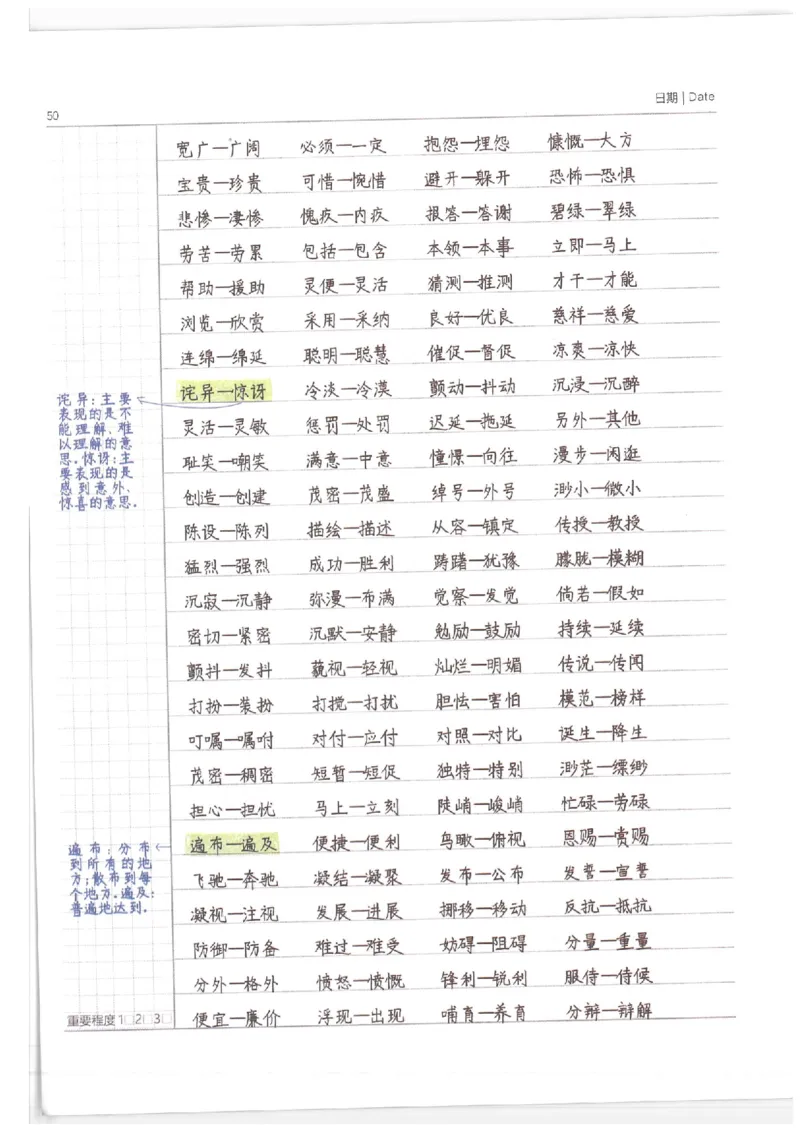 日期 | Date
50
宽广—广阔 必须—一定 抱怨—埋怨 慷慨—大方
宝贵—珍贵 可惜—惋惜 避开—躲开 恐怖—恐惧
悲惨—凄惨 愧疚—内疚 报答—答谢 碧绿—翠绿
劳苦—劳累 包括—包含 本领—本事 立即—马上
帮助—援助 灵便—灵活 猜测—推测 才干—才能
浏览—欣赏 采用—采纳 良好—优良 慈祥—慈爱
连绵—绵延 聪明—聪慧 催促—督促 凉爽—凉快
诧异—惊讶 冷淡—冷漠 颤动—抖动 沉浸—沉醉
灵活—灵敏 惩罚—处罚 迟延—拖延 另外—其他
耻笑—嘲笑 满意—中意 憧憬—向往 漫步—闲逛
创造—创建 茂密—茂盛 绰号—外号 渺小—微小
陈设—陈列 描绘—描述 从容—镇定 传授—教授
猛烈—强烈 成功—胜利 踌躇—犹豫 朦胧—模糊
沉寂—沉静 弥漫—布满 觉察—发觉 倘若—假如
密切—紧密 沉默—安静 勉励—鼓励 持续—延续
颤抖—发抖 藐视—轻视 灿烂—明媚 传说—传闻
打扮—装扮 打搅—打扰 胆怯—害怕 模范—榜样
叮嘱—嘱咐 对付—应付 对照—对比 诞生—降生
茂密—稠密 短暂—短促 独特—特别 渺茫—缥缈
担心—担忧 马上—立刻 陡峭—峻峭 忙碌—劳碌
遍布—遍及 便捷—便利 鸟瞰—俯视 恩赐—赏赐
飞驰—奔驰 凝结—凝聚 发布—公布 发誓—宣誓
凝视—注视 发展—进展 挪移—移动 反抗—抵抗
防御—防备 难过—难受 妨碍—阻碍 分量—重量
分外—格外 愤怒—愤慨 锋利—锐利 服侍—侍候
便宜—廉价 浮现—出现 哺育—养育 分辩—辩解
诧异:主要
表现的是不
能理解、难
以理解的意
思.惊讶:主
要表现的是
感到意外、
惊喜的意思.
遍布:分布
到所有的地
方;散布到每
个地方.遍及:
普遍地达到.
重要程度 1□2□3□